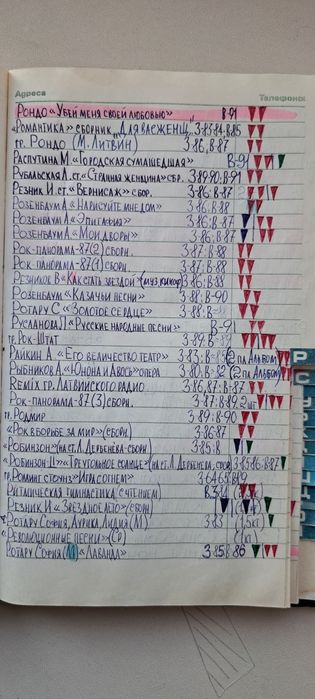 Адреса Телефоны
Рондо «Убей меня своей любовью» В-91
«Романтика» сборник „Для вас женщ." З-85 84. В.85
гр. Рондо (М. Литвин) З-86, В-87
Распутина М. «Городская сумасшедшая» В-91
Рубальская Л. ст. «Странная женщина» сбр. З-89.90. В-91
Резник И. ст. «Вернисаж» сбор. З-86: В-87
Розенбаум А «Нарисуйте мне дом» З-86: В-88
Розенбаум А «Эпитафия» З-86: В-87
Розенбаум А «Мои дворы» З-86: В-87
Рок-панорама-87 (2) сборн. З-87: В-88
Рок-панорама-87 (1) сборн. З-87: В-88
Резников В «Как стать звездой» З-86: В-88
Розенбаум «Казачьи песни» З-88: В-90
Ротару С «Золотое сердце» З-88: В-
Русланова Л «Русские народные песни» В-91
гр. Рок-Штат З-89. В-
Райкин А. «Его величество театр» (2 пл Альбом)
Рыбников А. «Юнона и Авось» опера З-80. В-82 (2 пл Альбом)
Remix гр. Латвийского радио З-86,87: В-87
Рок-панорама-87 (3) сборн. З-87: В-89. 2 шт
гр. Родмир З-89: В-90
«Рок в борьбе за мир» (сборн) З-86 87
«Робинзон» (на ст. Л. Дербенёва сборн) З-85: В
«Робинзон-Ⅱ» «Треугольное солнце» (на ст. Л. Дербенёва, сбор) З-85 86: В-87
гр. Роллинг Стоунз «Игра с огнем»
Ритмическая гимнастика (с чтением) В.
Резник И «Звёздное лето» (сборн)
Ротару София, Аурика, Лидия (М) З 83 (1,5к)
«Революционные песни» (Ср) (1к)
Ротару София (М) «Лаванда» З 85 В 86
Р
С